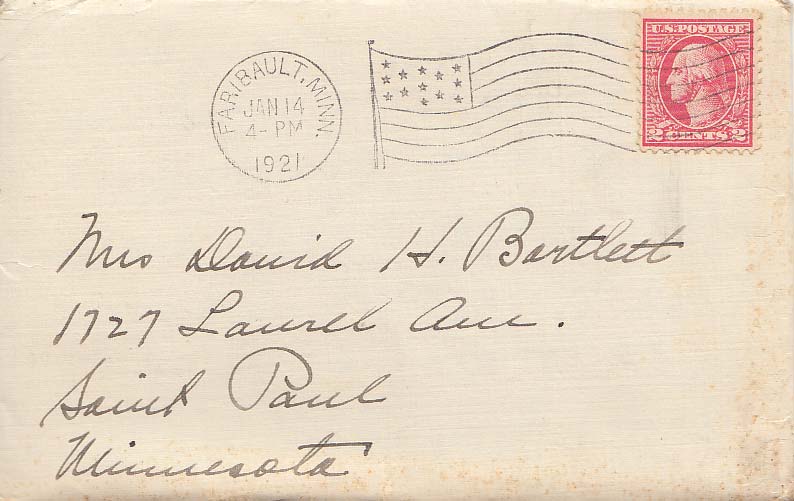 FARIBAULT, MINN.
JAN 14
4- PM
1921
U.S. POSTAGE
2 CENTS 2
Mrs David H. Bartlett
1727 Laurel Ave.
Saint Paul
Minnesota